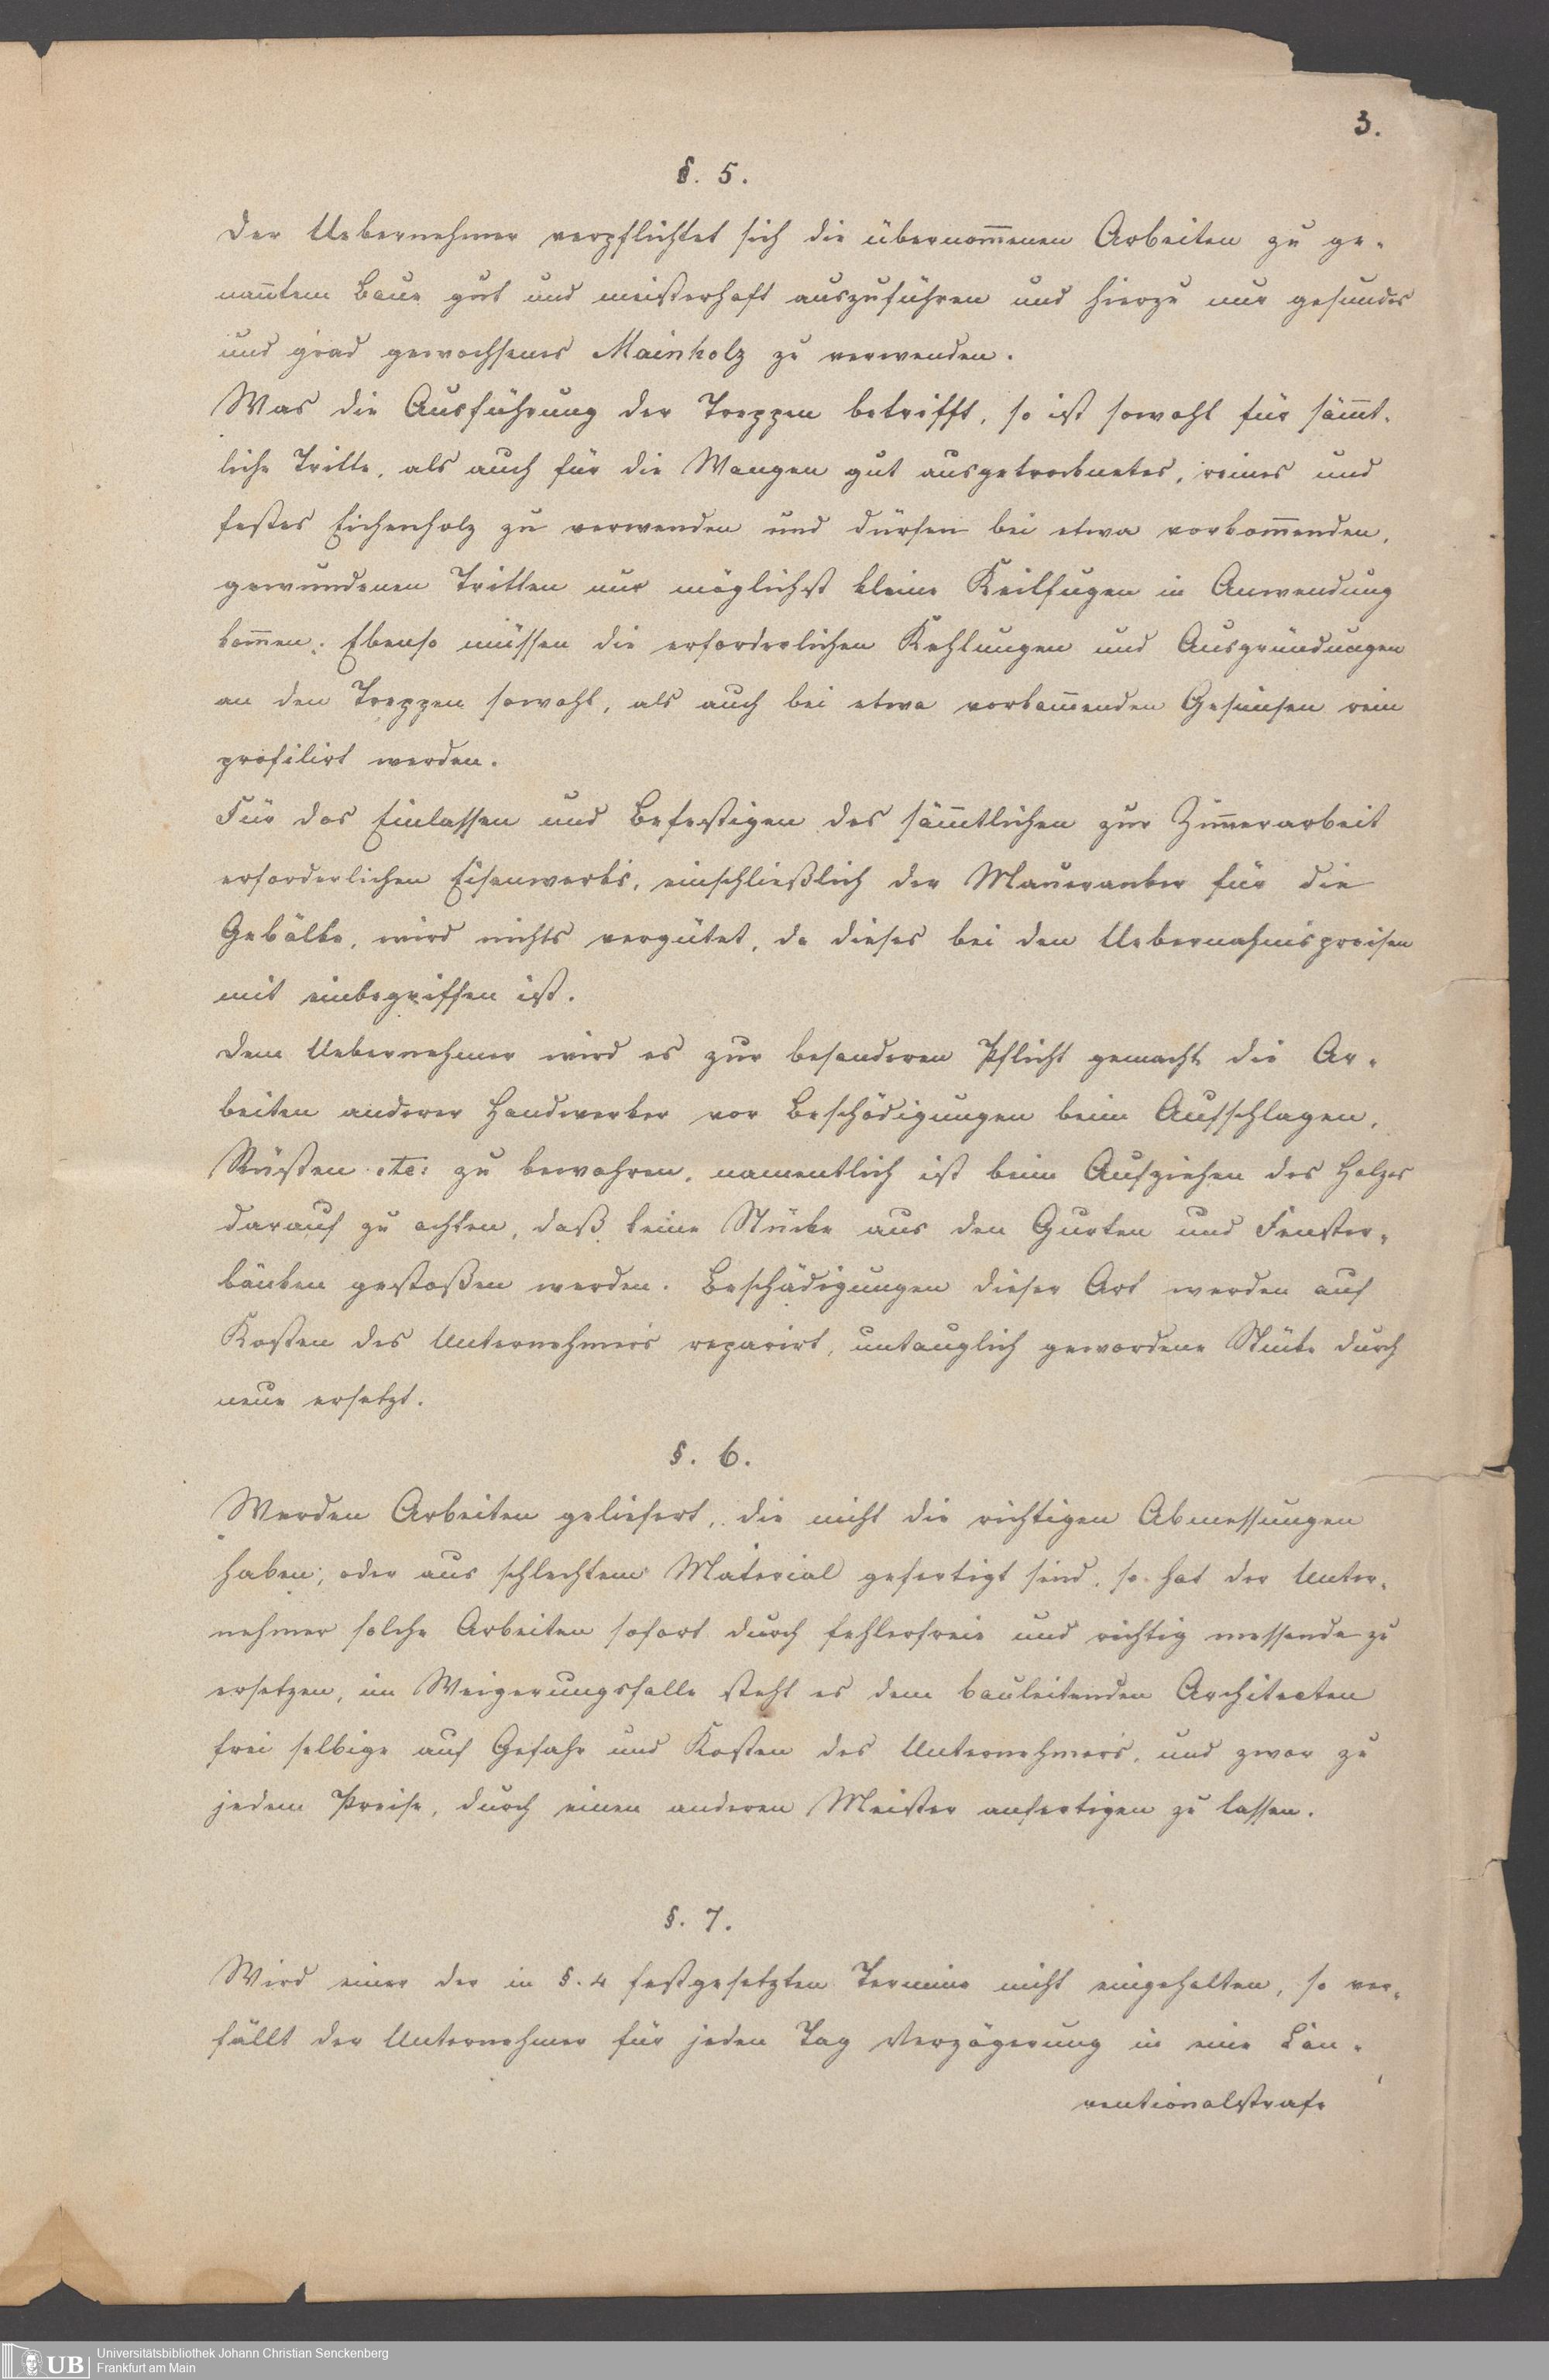 3.
§. 5.
Der Uebernehmer verpflichtet sich die übernom̅enen Arbeiten zu ge-
nan̅tem Baue gut und meisterhaft auszuführen und hierzu nur gesundes
und grad gewachsenes Mainholz zu verwenden.
Was die Ausführung der Treppen betrifft, so ist sowohl für säm̅t-
liche Tritte, als auch für die Wangen gut ausgetrocknetes, reines und
festes Eichenholz zu verwenden und dürfen bei etwa vorkom̅enden,
gewundenen Tritten nur möglichst kleine Keilfugen in Anwendung
kom̅en. Ebenso müssen die erforderlichen Kehlungen und Ausgründungen
an den Treppen sowohl, als auch bei etwa vorkom̅enden Gesimsen rein
profilirt werden.
Für das Einlassen und Befestigen des säm̅tlichen zur Zim̅erarbeit
erforderlichen Eisenwerks, einschließlich der Maueranker für die
Gebälke, wird nichts vergütet, da dieses bei den Uebernahmspreisen
mit einbegriffen ist.
Dem Uebernehmer wird es zur besonderen Pflicht gemacht die Ar-
beiten anderer Handwerker vor Beschädigungen beim Aufschlagen,
Rüsten etc: zu bewahren, namentlich ist beim Aufziehen des Holzes
darauf zu achten, daß keine Stücke aus den Gurten und Fenster-
bänken gestoßen werden. Beschädigungen dieser Art werden auf
Kosten des Unternehmers reparirt, untauglich gewordene Stücke durch
neue ersetzt.
§. 6.
Werden Arbeiten geliefert, die nicht die richtigen Abmessungen
haben, oder aus schlechtem Material gefertigt sind, so hat der Unter-
nehmer solche Arbeiten sofort durch fehlerfreie und richtig messende zu
ersetzen, im Weigerungsfalle steht es dem bauleitenden Architecten
frei selbige auf Gefahr und Kosten des Unternehmers, und zwar zu
jedem Preise, durch einen anderen Meister anfertigen zu lassen.
§. 7.
Wird einer der in §. 4 festgesetzten Termine nicht eingehalten, so ver-
fällt der Unternehmer für jeden Tag Verzögerung in eine Con-
ventionalstrafe
UB
Universitätsbibliothek Johann Christian Senckenberg
Frankfurt am Main